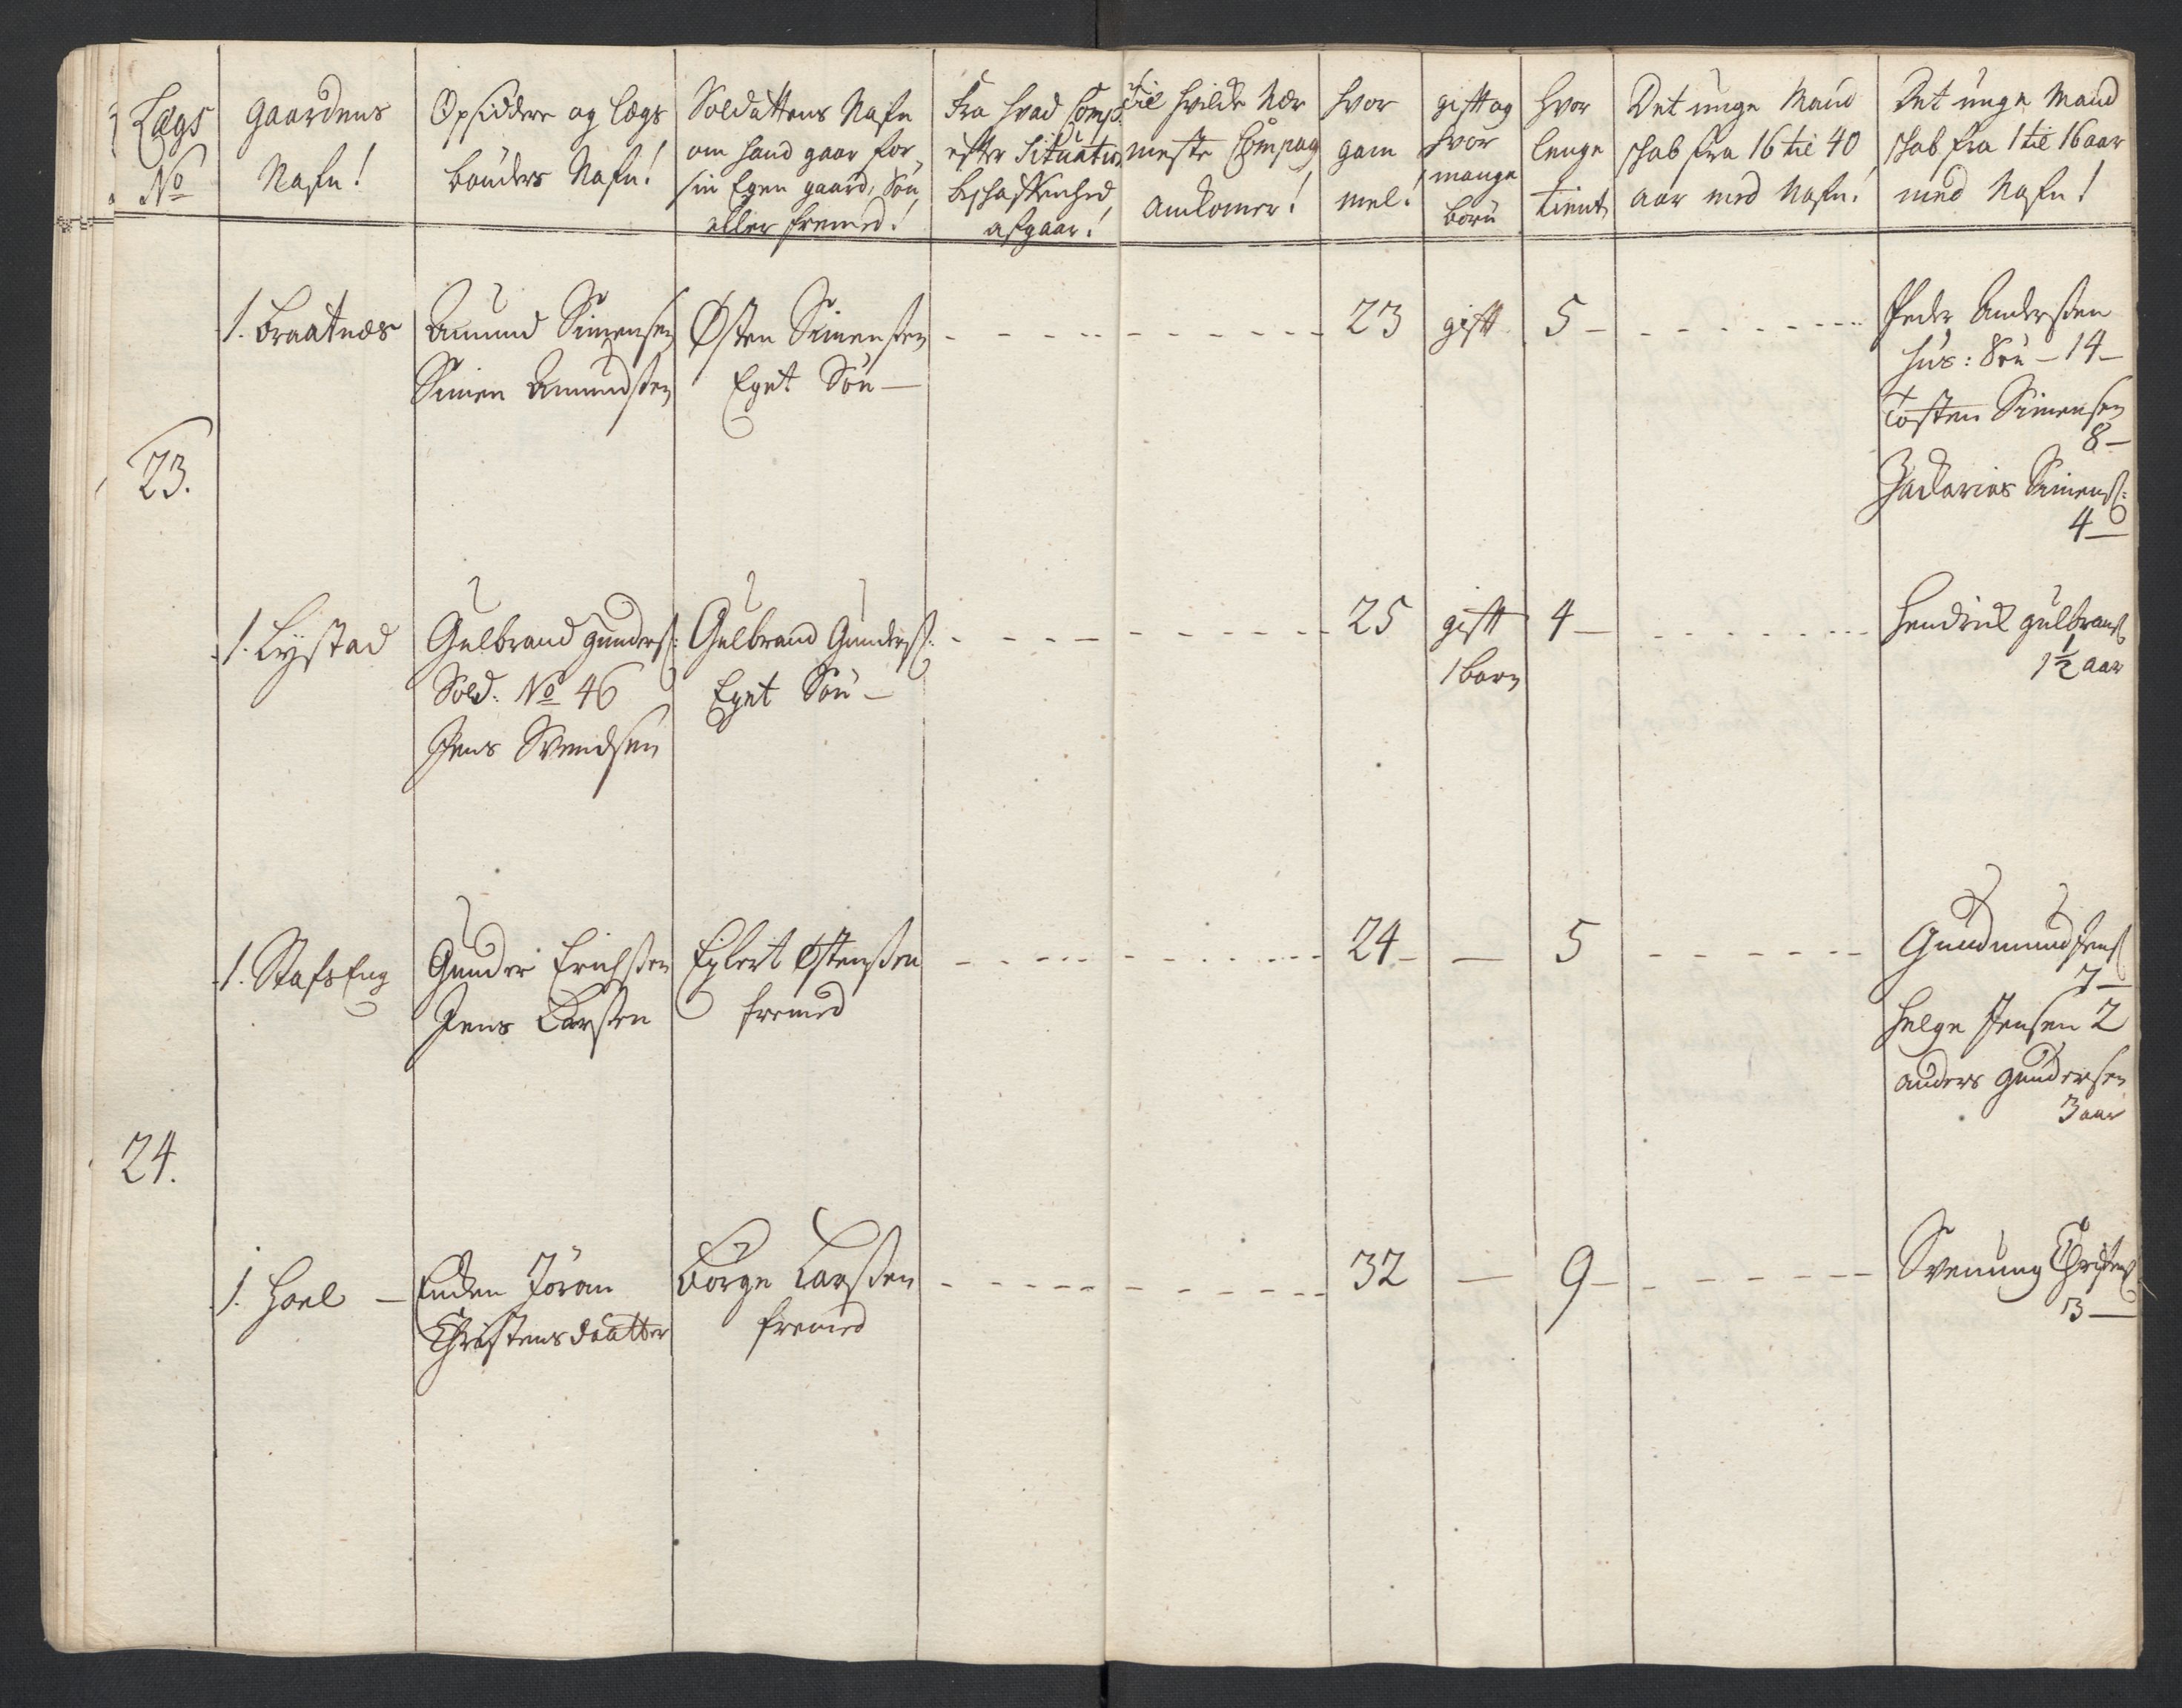 Lægs
No
Gaardens
Nafn!
Opsiddere og Lægs
bönders Nafn!
Soldattens Nafn
om hand gaar for
sin Egen gaard, Sön
eller fremed!
Fra hvad Comp.
efter Situations
beschaffenhed
afgaar!
Til hvilcke Nær
meste Compag
ankomer!
hvor
gam
mel!
gift og
hvor
mange
börn
hvor
lenge
tient
Det unge Mand
schab fra 16 til 40
aar med Nafn!
Det unge Mand
schab fra 1 til 16 aar
med Nafn!
23.
1. Braatnæs
Amund Simensen
Simen Amundsen
Østen Simensen
Eget Sön —
23
gift
5 —
Peder Andersen
hus: Sön — 14 —
Tosten Simensen
8 —
Zackarias Simens:
4 —
1. Lystad
Gulbrand Gunders:
Sold: No 46
Jens Svendsen
Gulbrand Gunders:
Eget Sön —
25
gift
1 barn
4 —
Hendrick Gulbrans
1½ aar
24.
1. StafsEng
Gunder Erichsen
Jens Larsen
Eylert Østensen
fremed
24 —
—
5
Gudmund Jens
7 —
Helge Jensen 2
Anders Gundersen
3 aar
1. Hoel —
Encken Jöran
Christensdaatter
Börge Larsen
fremed
32
—
9 —
Svenung Christens
3 —